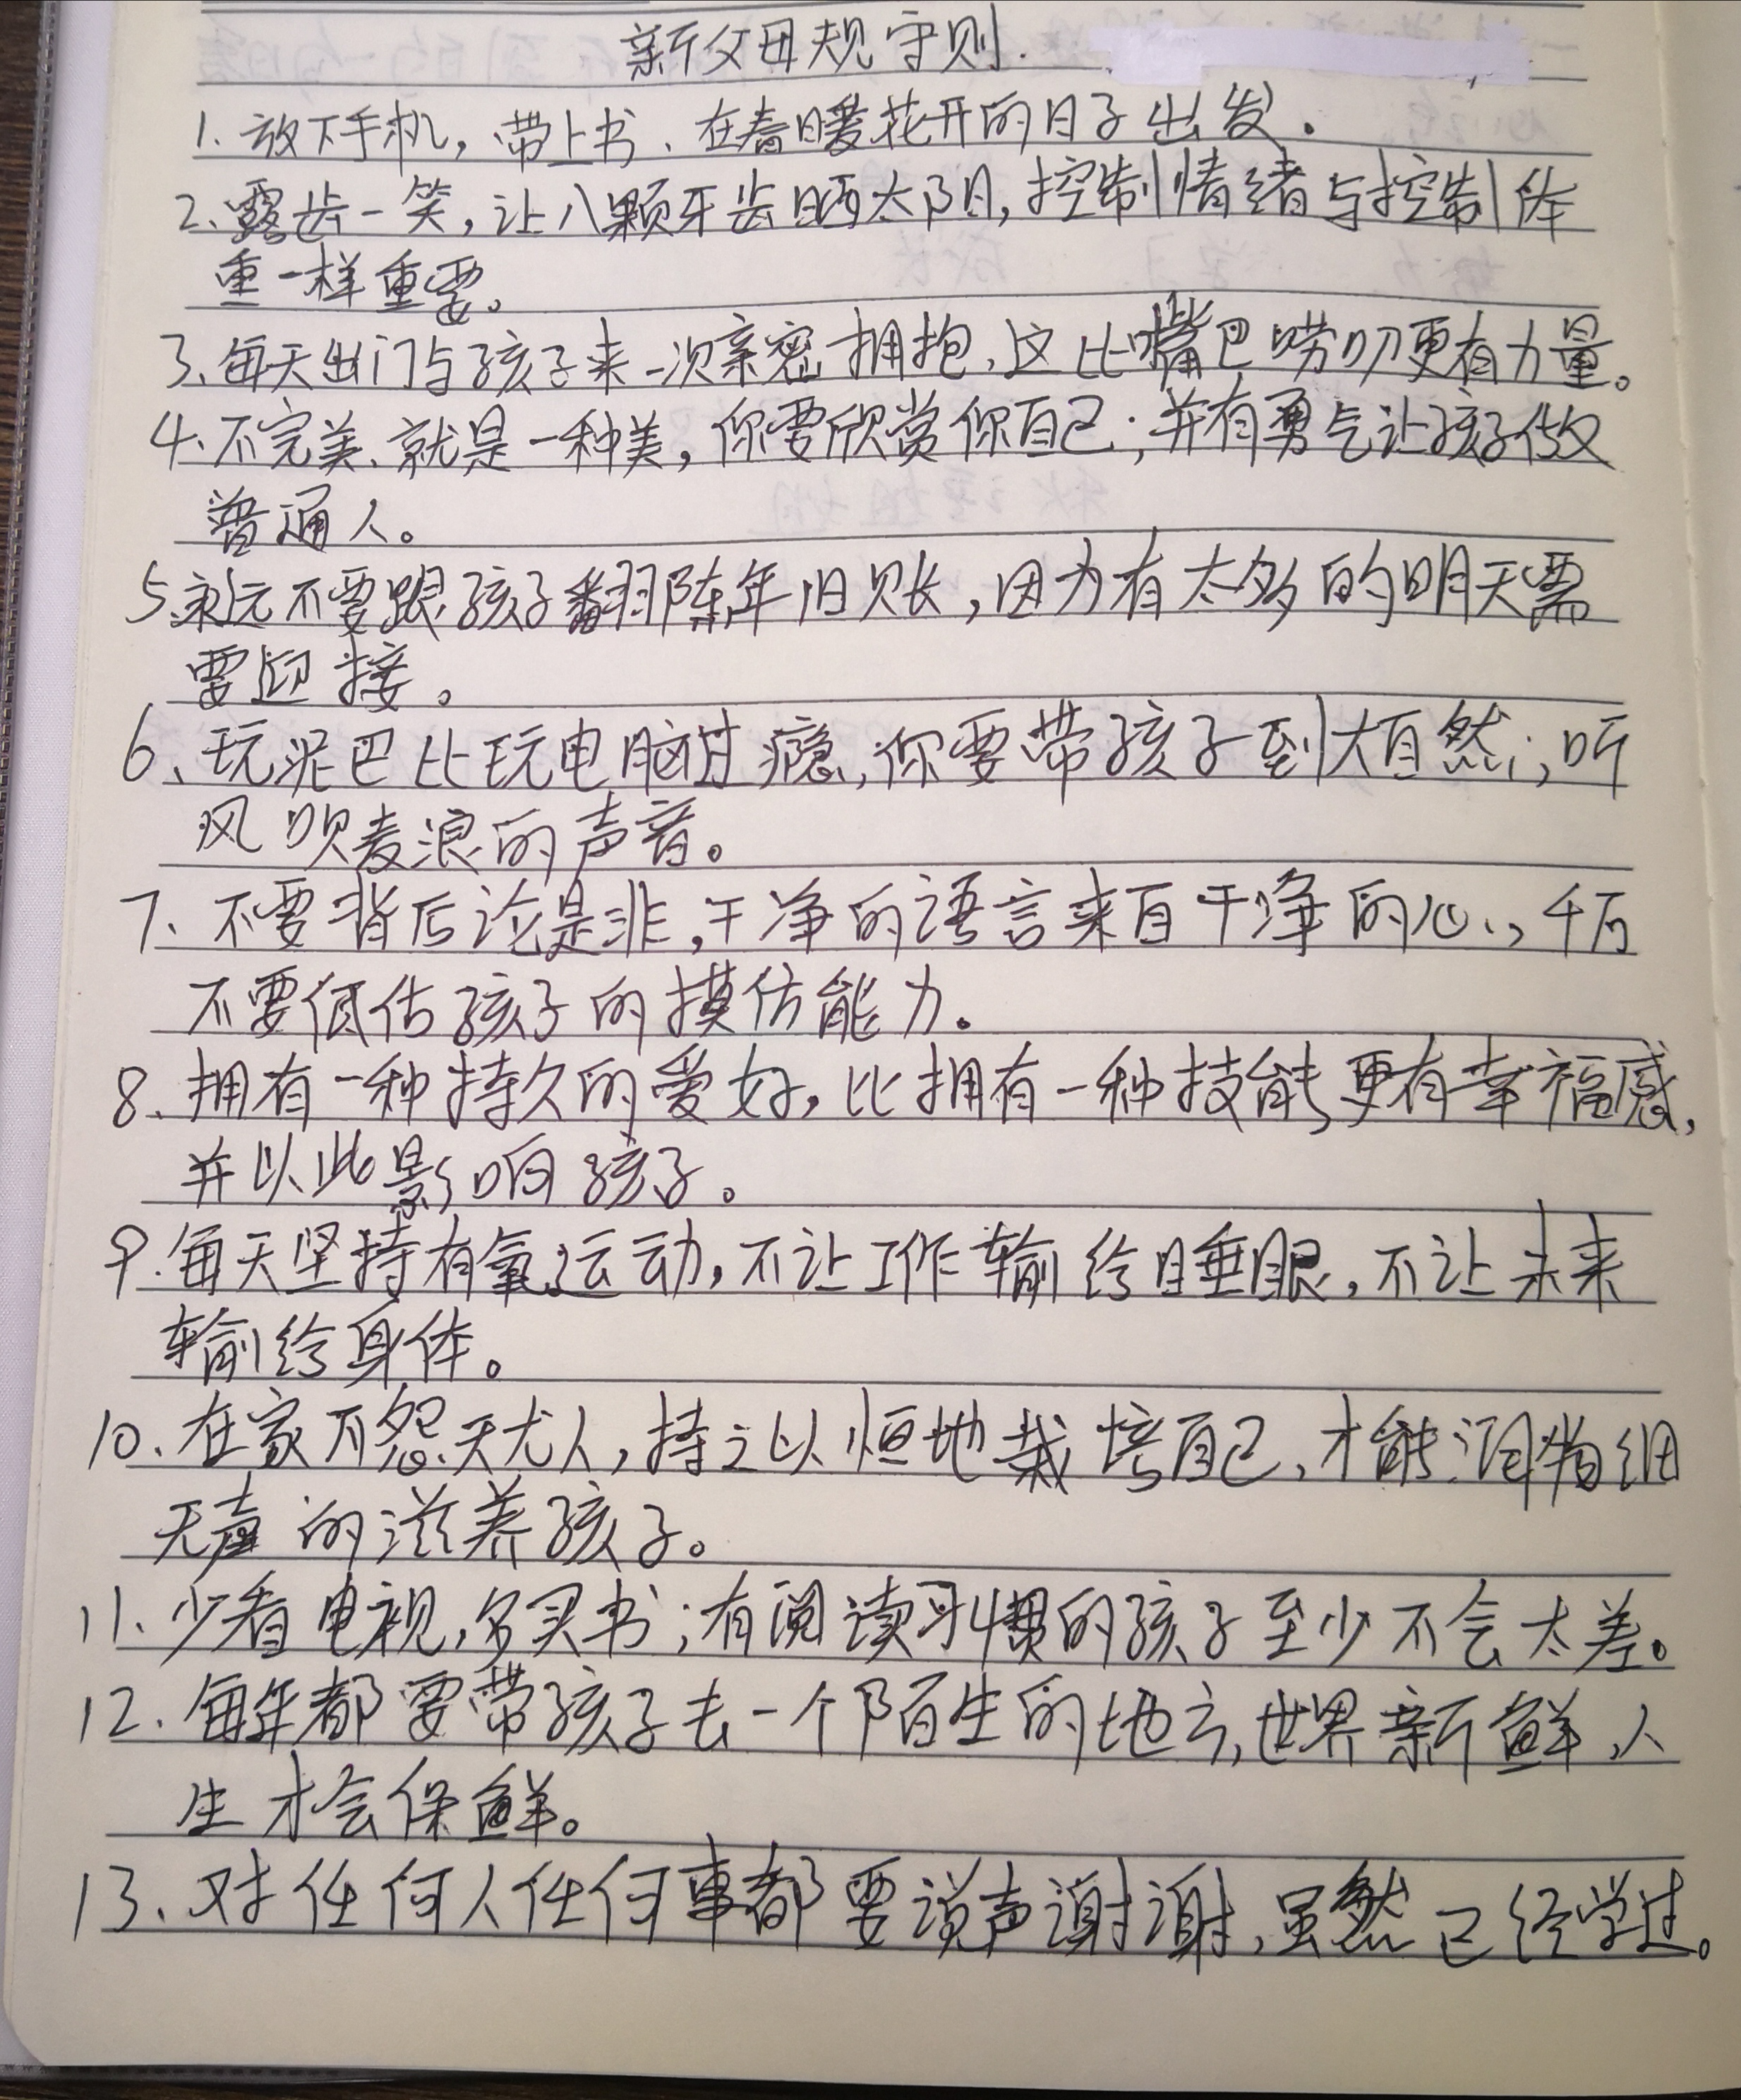 新父母规守则.
1.放下手机，带上书、在春暖花开的日子出发.
2、露齿一笑，让八颗牙齿晒太阳，控制情绪与控制体
重一样重要。
3、每天出门与孩子来一次亲密拥抱，这比嘴巴唠叨更有力量。
4、不完美、就是一种美，你要欣赏你自己；并有勇气让孩子做
普通人。
5、永远不要跟孩子翻陈年旧账，因为有太多的明天需
要迎接。
6、玩泥巴比玩电脑过瘾，你要带孩子到大自然，听
风吹麦浪的声音。
7、不要背后论是非，干净的语言来自干净的心，千万
不要低估孩子的摸仿能力。
8、拥有一种持久的爱好，比拥有一种技能更有幸福感，
并以此影响孩子。
9.每天坚持有氧运动，不让工作输给睡眠，不让未来
输给身体。
10、在家不怨天尤人，持之以恒地栽培自己，才能润物细
无声的滋养孩子。
11、少看电视，多买书；有阅读习惯的孩子至少不会太差。
12、每年都要带孩子去一个陌生的地方，世界新鲜，人
生才会保鲜。
13、对任何人任何事都要说声谢谢，虽然已经学过。